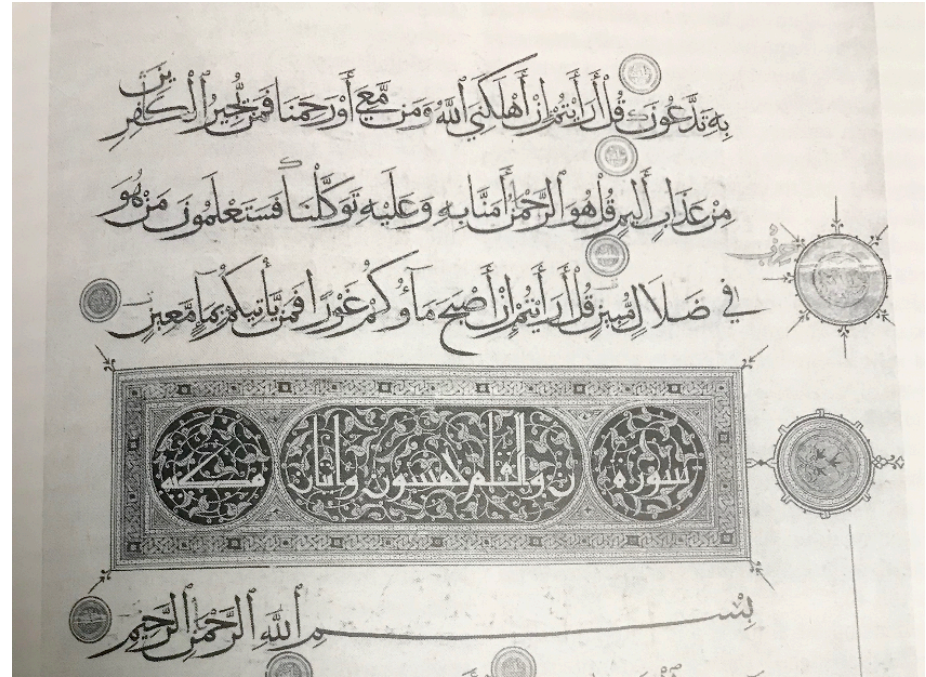 بِهِ تَدَّعُونَ قُلْ أَرَأَيْتُمْ إِنْ أَهْلَكَنِيَ ٱللَّهُ وَمَن مَّعِيَ أَوْ رَحِمَنَا فَمَن يُجِيرُ ٱلْكَٰفِرِينَ
مِنْ عَذَابٍ أَلِيمٍ قُلْ هُوَ ٱلرَّحْمَٰنُ ءَامَنَّا بِهِ وَعَلَيْهِ تَوَكَّلْنَا فَسَتَعْلَمُونَ مَنْ هُوَ
فِي ضَلَالٍ مُّبِينٍ قُلْ أَرَأَيْتُمْ إِنْ أَصْبَحَ مَآؤُكُمْ غَوْرًا فَمَن يَأْتِيكُم بِمَآءٍ مَّعِينٍ
سورة ن والقلم خمسون واثنان مكية
بِسْمِ ٱللَّهِ ٱلرَّحْمَٰنِ ٱلرَّحِيمِ